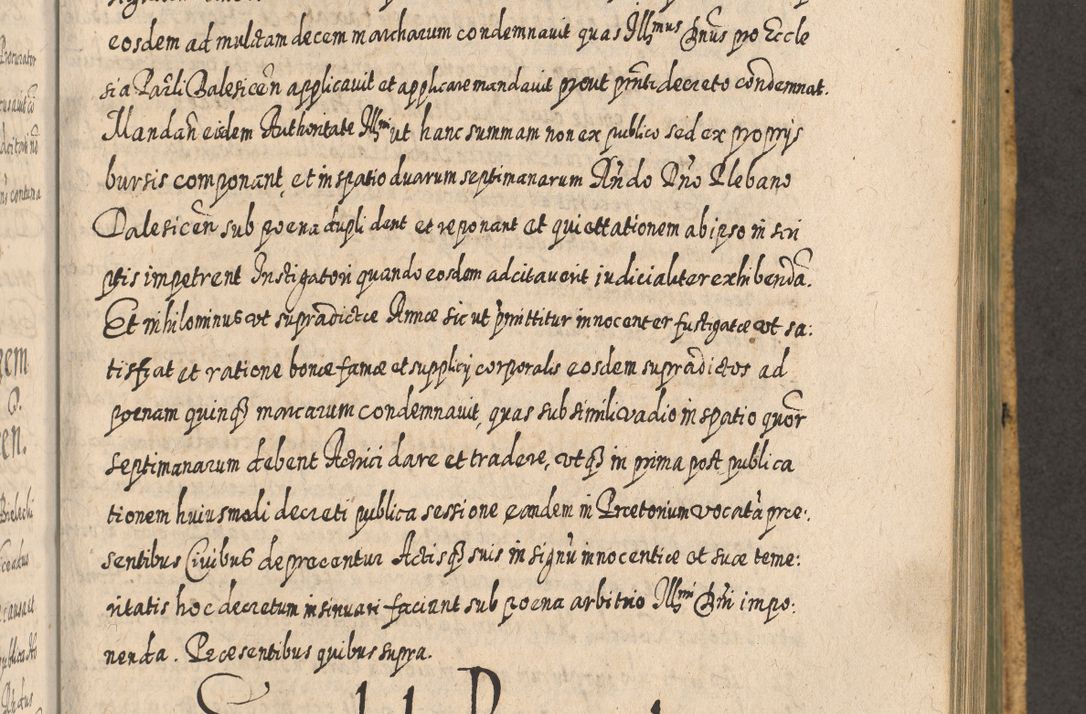 eosdem ad mulctam decem marcharum condemnavit quas Illmus Dnus pro Eccle
sia Parli Balesicen applicavit et applicare mandavit prout pnti decreto condemnat.
Mandan eisdem Authoritate Illmi ut hanc summam non ex publico sed ex propijs
bursis componant, et in spatio duarum septimanarum Andο Dno Plebano
Balesicen sub poena dupli dent et reponant et quiettationem ab ipso in scri
ptis impetrent Instigatori quando eosdem adcitaverit iudicialiter exhibenda.
Et nihilominus ut supradictae Annae sic ut pmittitur innocenter fustigatae ut sa:
tisfiat et ratione bonae famae et supplicij corporalis eosdem supradictos ad
poenam quinq marcarum condemnavit, quas sub simili vadio in spatio quor
septimanarum debent Actrici dare et tradere, utq in prima post publica
tionem huiusmodi decreti publica sessione eandem in Praetorium vocata prae:
sentibus Civibus depraecentur Actisq suis in signu innocentiae et suae teme:
ritatis hoc decretum insinuari faciant sub poena arbitrio Illmi Dni impo:
nenda. Praesentibus quibus supra.